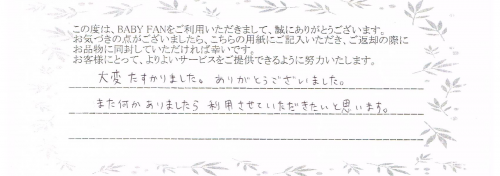 この度は、BABY FANをご利用いただきまして、誠にありがとうございます。
お気づきの点がございましたら、こちらの用紙にご記入いただき、ご返却の際に
お品物に同封していただければ幸いです。
お客様にとって、よりよいサービスをご提供できるように努力いたします。
大変たすかりました。ありがとうございました。
また何かありましたら利用させていただきたいと思います。